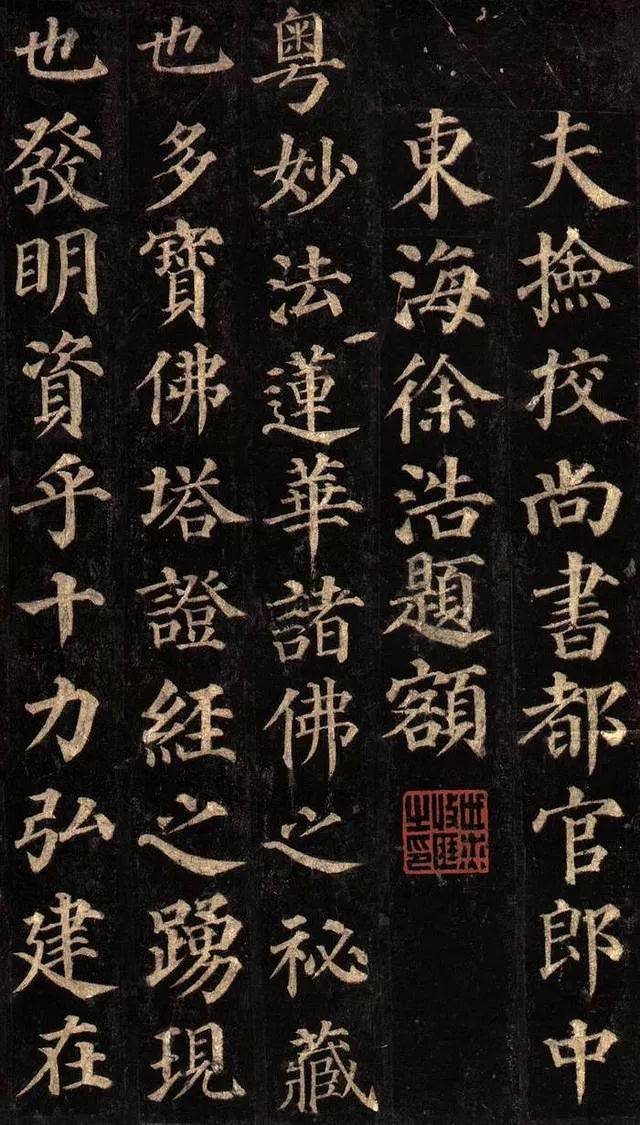 夫撿挍尚書都官郎中
東海徐浩題額
粤妙法蓮華諸佛之祕藏
也多寶佛塔證經之踴現
也發明資乎十力弘建在